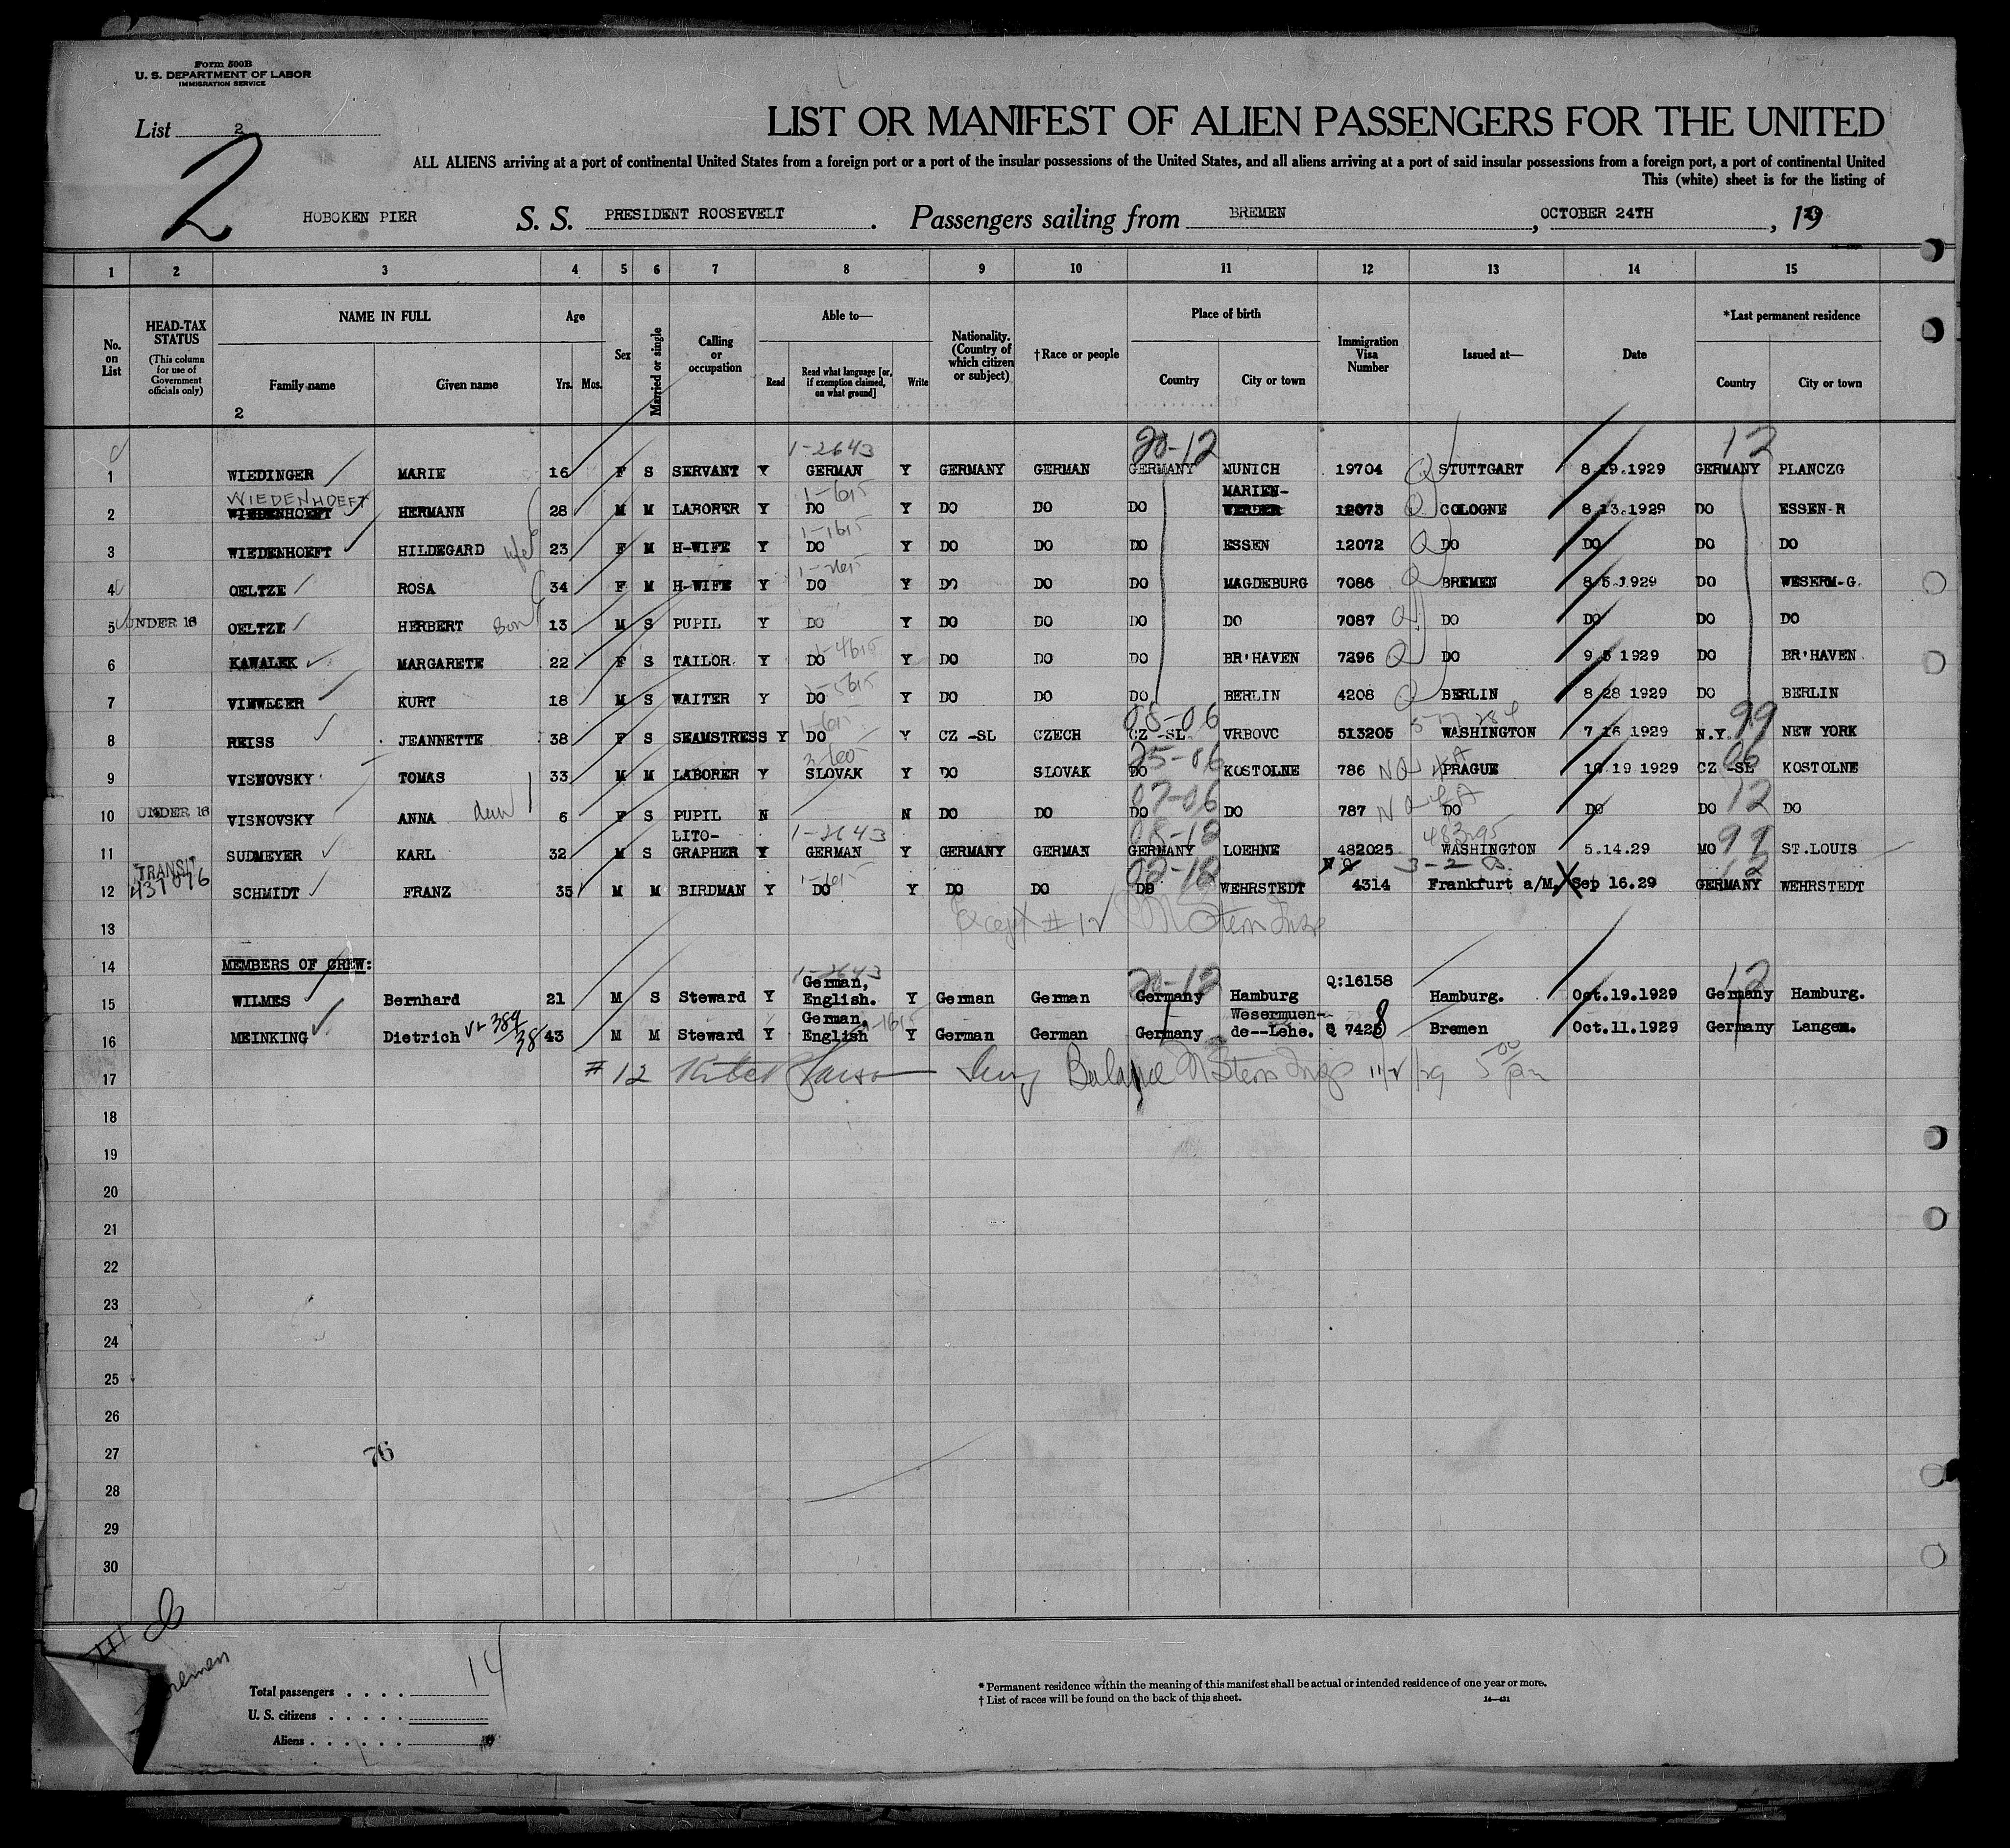 Form 500B
U. S. DEPARTMENT OF LABOR
IMMIGRATION SERVICE
List 2
2
LIST OR MANIFEST OF ALIEN PASSENGERS FOR THE UNITED
ALL ALIENS arriving at a port of continental United States from a foreign port or a port of the insular possessions of the United States, and all aliens arriving at a port of said insular possessions from a foreign port, a port of continental United
This (white) sheet is for the listing of
HOBOKEN PIER S. S. PRESIDENT ROOSEVELT. Passengers sailing from BREMEN, OCTOBER 24TH, 19
1 2 3 4 5 6 7 8 9 10 11 12 13 14 15
No. on List
HEAD-TAX STATUS (This column for use of Government officials only)
NAME IN FULL
Family name Given name
2
Age
Yrs. Mos.
Sex
Married or single
Calling or occupation
Able to—
Read Read what language [or, if exemption claimed, on what ground] Write
Nationality. (Country of which citizen or subject)
†Race or people
Place of birth
Country City or town
Immigration Visa Number
Issued at—
Date
*Last permanent residence
Country City or town
1-2643 20-12 12
1 WIEDINGER MARIE 16 F S SERVANT Y GERMAN Y GERMANY GERMAN GERMANY MUNICH 19704 Q STUTTGART 8.19.1929 GERMANY PLANCZG
WIEDENHOEFT 1-615 MARIEN-
2 WIEDENHOEFT HERMANN 28 M M LABORER Y DO Y DO DO DO WERDER 12073 Q COLOGNE 8.13.1929 DO ESSEN-R
1-1615
3 WIEDENHOEFT HILDEGARD wife 23 F M H-WIFE Y DO Y DO DO DO ESSEN 12072 Q DO DO DO DO
4 OELTZE ROSA 34 F M H-WIFE Y DO Y DO DO DO MAGDEBURG 7086 Q BREMEN 8/5.1929 DO WESERM-G.
5 UNDER 16 OELTZE HERBERT 13 M S PUPIL Y DO Y DO DO DO DO 7087 Q DO DO DO DO
1-4615
6 KAWALEK MARGARETE 22 F S TAILOR Y DO Y DO DO DO BR'HAVEN 7296 Q DO 9 5 1929 DO BR'HAVEN
7 VIEWEGER KURT 18 M S WAITER Y DO Y DO DO DO BERLIN 4208 Q BERLIN 8 28 1929 DO BERLIN
1-615 08-06 99
8 REISS JEANNETTE 38 F S SEAMSTRESS Y DO Y CZ -SL CZECH CZ -SL. VRBOVC 513205 WASHINGTON 7 16 1929 N.Y. NEW YORK
25-06 06
9 VISNOVSKY TOMAS 33 M M LABORER Y SLOVAK Y DO SLOVAK DO KOSTOLNE 786 NQ PRAGUE 10 19 1929 CZ -SL KOSTOLNE
07-06 12
10 UNDER 16 VISNOVSKY ANNA 6 F S PUPIL N N DO DO DO DO 787 DO DO DO DO
LITO- 1-2643 08-12 48395 99
11 SUDMEYER KARL 32 M S GRAPHER Y GERMAN Y GERMANY GERMAN GERMANY LOEHNE 482025 WASHINGTON 5.14.29 MO ST.LOUIS
TRANSIT
437076 1-615 02-12 3-2 B. 12
12 SCHMIDT FRANZ 35 M M BIRDMAN Y DO Y DO DO DO WEHRSTEDT 4314 Frankfurt a/M. Sep 16.29 GERMANY WEHRSTEDT
13 Except #12 M Stern Insp
14 MEMBERS OF CREW:
1-2643 20-12 12
German, Q:16158
15 WILMES Bernhard 21 M S Steward Y English. Y German German Germany Hamburg Hamburg. Oct.19.1929 Germany Hamburg.
German, Wesermuen-
16 MEINKING Dietrich 43 M M Steward Y English Y German German Germany de--Lehe. Q 7428 Bremen Oct.11.1929 Germany Langem.
17 #12 Balance M Stern Insp 11/2/29 5 00/pm
18
19
20
21
22
23
24
25
26
27
76
28
29
30
III
Bremen
Total passengers . . . . 14
U. S. citizens . . . . .
Aliens . . . . . .
* Permanent residence within the meaning of this manifest shall be actual or intended residence of one year or more.
† List of races will be found on the back of this sheet.
14—421